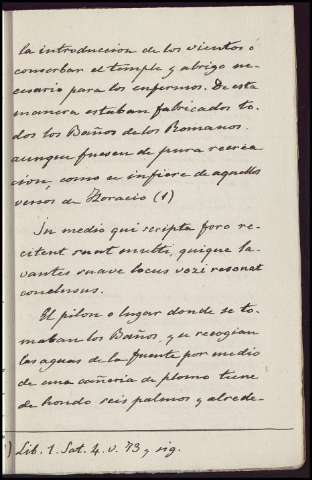 la introduccion de los vientos ó
conserbar el temple y abrigo ne-
cesario para los enfermos. De esta
manera estaban fabricados to-
dos los Baños de los Romanos.
aunque fuesen de pura recrea
cion, como se infiere de aquellos
versos de Horacio (1)
In medio qui scripta foro re-
citent sunt multi, quique la-
vantes suave locus vozi resonat
conclusus.
El pilon o lugar donde se to-
maban los Baños, y se recogian
las aguas de la fuente por medio
de una cañeria de plomo tiene
de hondo seis palmos y alrede-
) Lib. 1. Sat. 4. v. 73 y sig.